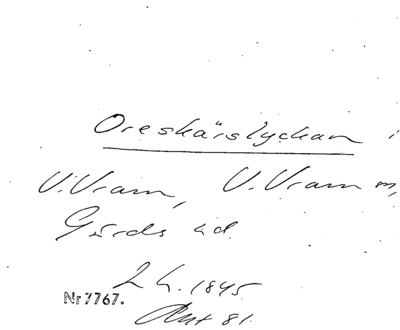 Oreskärslyckan i
V. Vram, V. Vram sn,
Gärds hd
2 h. 1845
Nr 7767.
Akt 81.